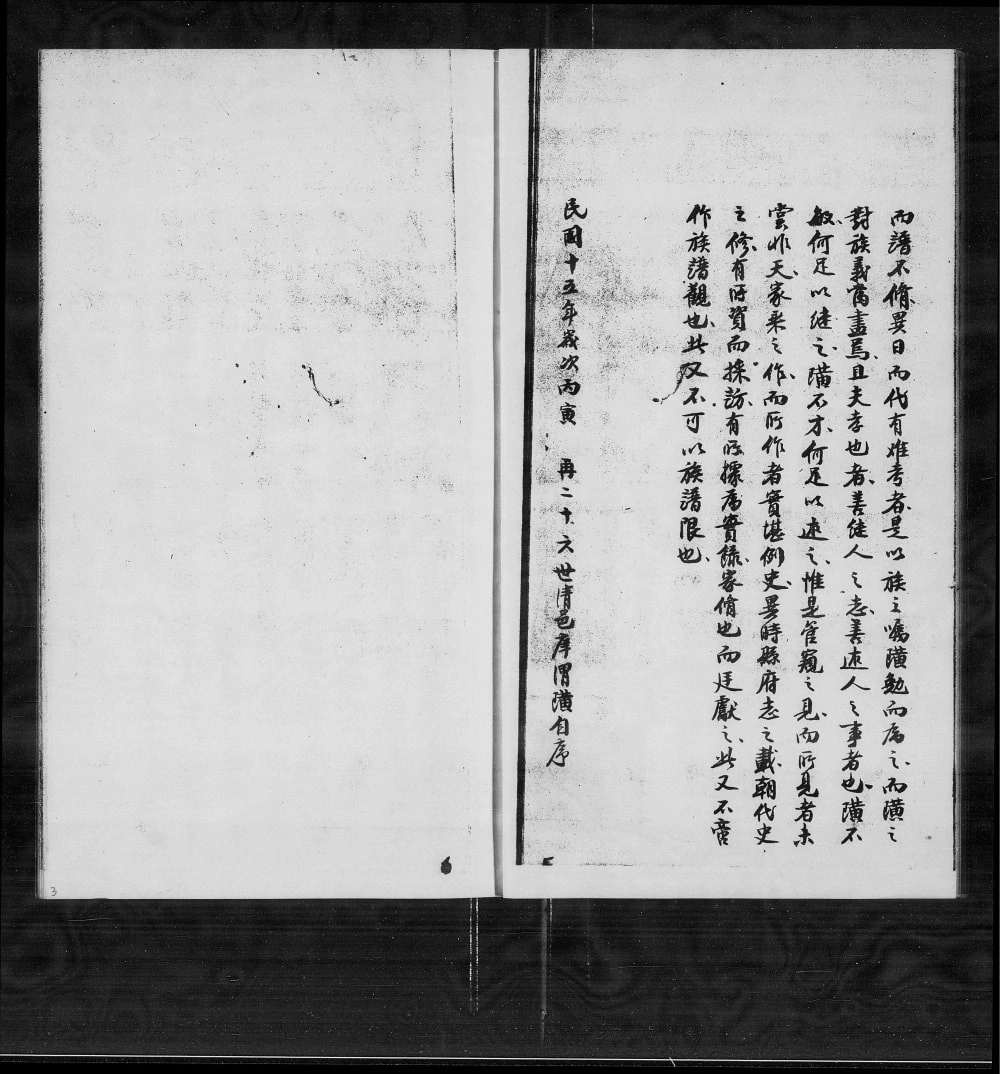 而譜不脩異日而代有难考者是以族之嘱璜勉而為之而璜之
對族義當盡焉且夫孝也者善継人之志善述人之事者也璜不
敏何足以継之璜不才何足以述之惟是管窺之見而所見者未
嘗非天家乘之作而所作者實堪例史異時縣府志之載朝代史
之修有所資而採訪有所據為實錄家脩也而廷獻之此又不啻
作族譜觀也此又不可以族譜限也
民國十五年歲次丙寅 再二十六世清邑庠渭璜自序
5
6
3